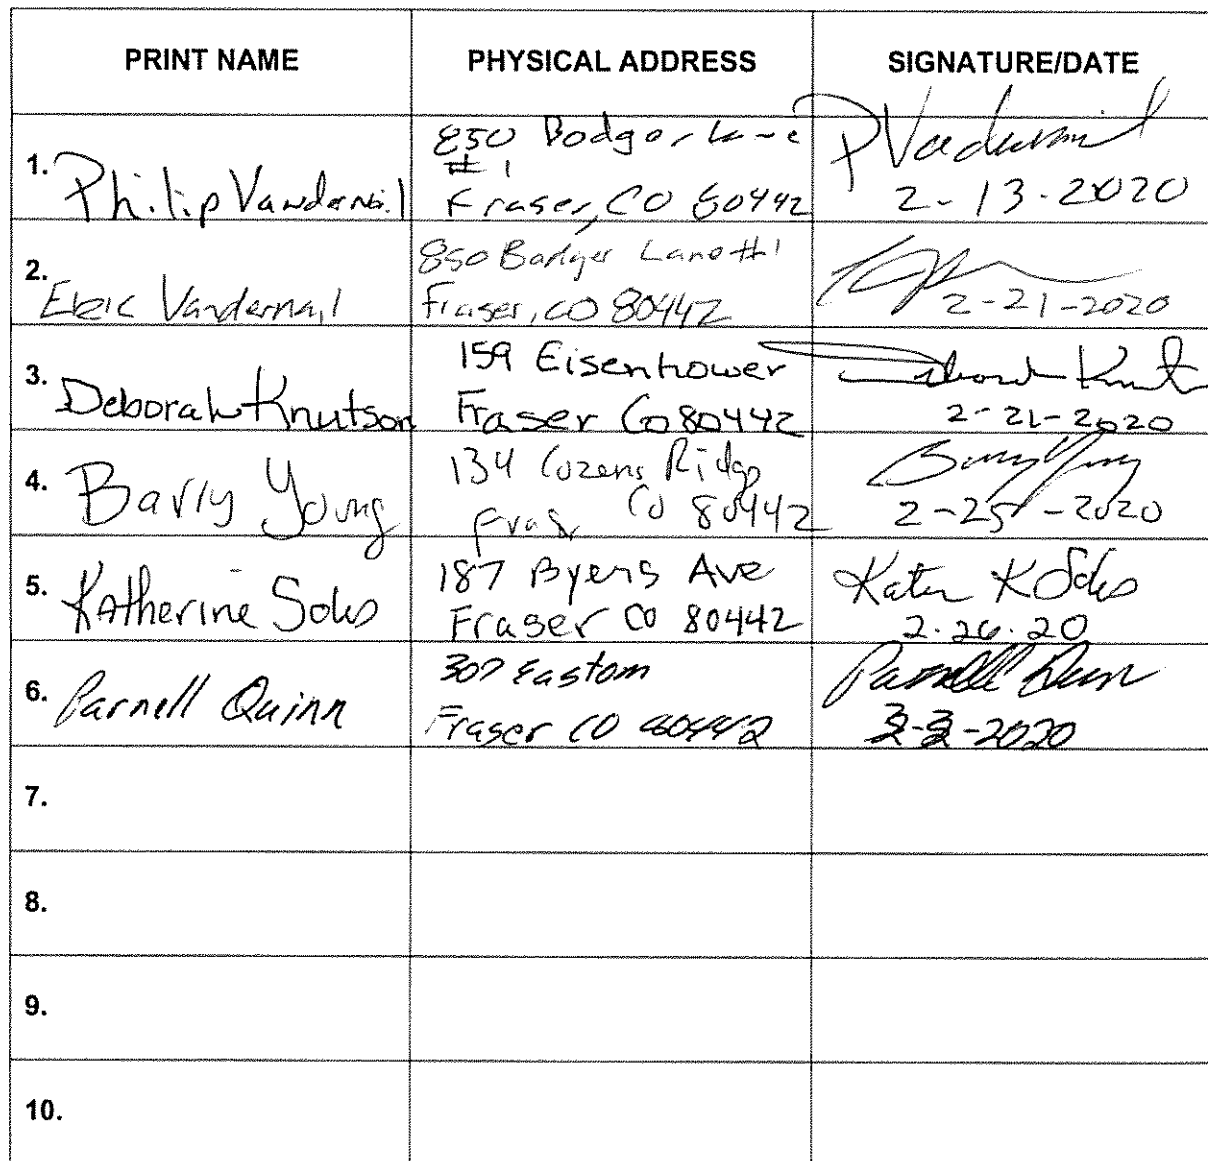 PRINT NAME PHYSICAL ADDRESS SIGNATURE/DATE
1. Philip Vandernail
850 Badger Lane
#1
Fraser, CO 80442
P Vandernail
2-13-2020
2. Vandernail
850 Badger Lane #1
Fraser, CO 80442
2-21-2020
3. Deborah Knutson
159 Eisenhower
Fraser Co 80442
Deborah Knutson
2-21-2020
4. Barry Young
134 Cozens Ridge
Fraser CO 80442
Barry Young
2-25-2020
5. Katherine Soles
187 Byers Ave
Fraser CO 80442
K Soles
2.26.20
6. Parnell Quinn
307 Eastom
Fraser CO 80442
Parnell Quinn
-2020
7.
8.
9.
10.